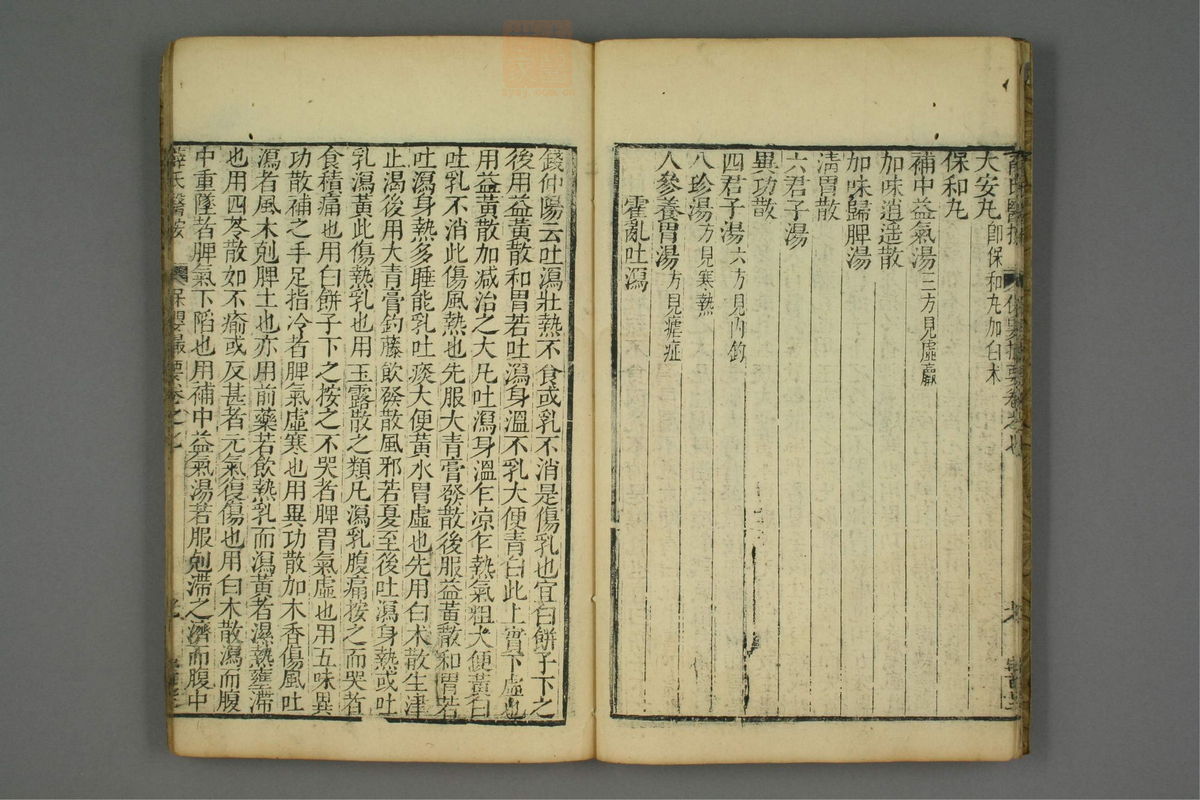 大安丸即保和丸加白朮
保和丸
補中益氣湯三方見虛羸
加味逍遥散
加味歸脾湯
清胃散
六君子湯
異功散
四君子湯六方見內釣
八珍湯方見寒熱
人參養胃湯方見瘧症
霍亂吐瀉
錢仲陽云吐瀉壯熱不食或乳不消是傷乳也宜白餅子下之
後用益黃散和胃若吐瀉身溫不乳大便青白此上實下虛也
用益黃散加減治之大凡吐瀉身溫乍凉乍熱氣粗大便黃白
吐乳不消此傷風熱也先服大青膏發散後服益黃散和胃若
吐瀉身熱多睡能乳吐痰大便黃水胃虛也先用白朮散生津
止渴後用大青膏釣藤飲發散風邪若夏至後吐瀉身熱或吐
乳瀉黃此傷熱乳也用玉露散之類凡瀉乳腹痛按之而哭者
食積痛也用白餅子下之按之不哭者脾胃氣虛也用五味異
功散補之手足指冷者脾氣虛寒也用異功散加木香傷風吐
瀉者風木剋脾土也亦用前藥若飲熱乳而瀉黃者濕熱壅滯
也用四苓散如不瘉或反甚者元氣復傷也用白朮散瀉而腹
中重墜者脾氣下陷也用補中益氣湯若服剋滯之濟而腹中
薛氏醫按 保嬰撮要卷之七